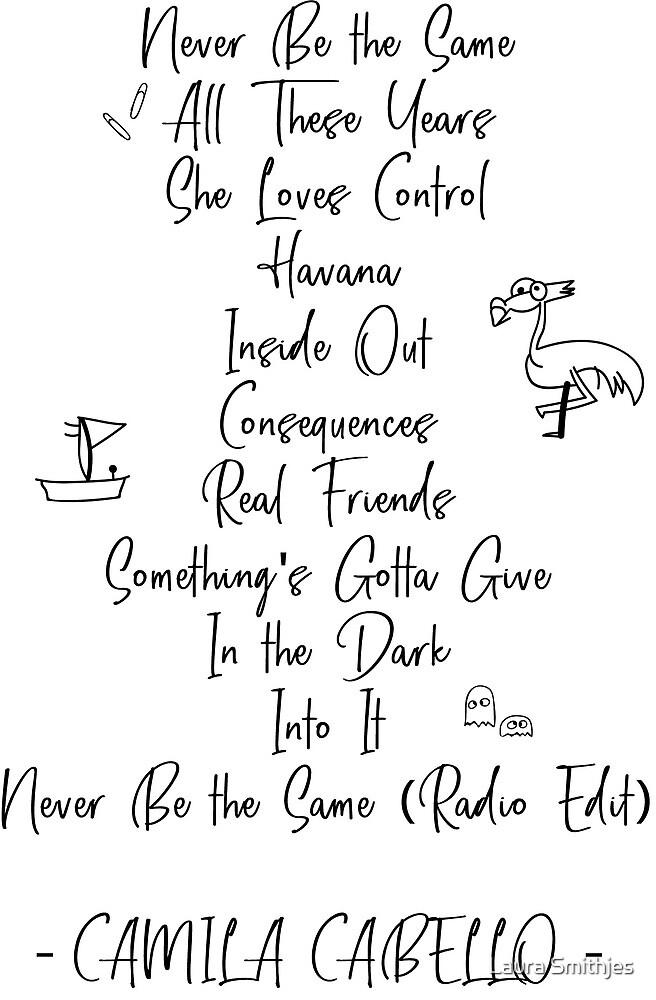 Never Be the Same
All These Years
She Loves Control
Havana
Inside Out
Consequences
Real Friends
Something's Gotta Give
In the Dark
Into It
Never Be the Same (Radio Edit)
- CAMILA CABELLO -
Laura Smithjes